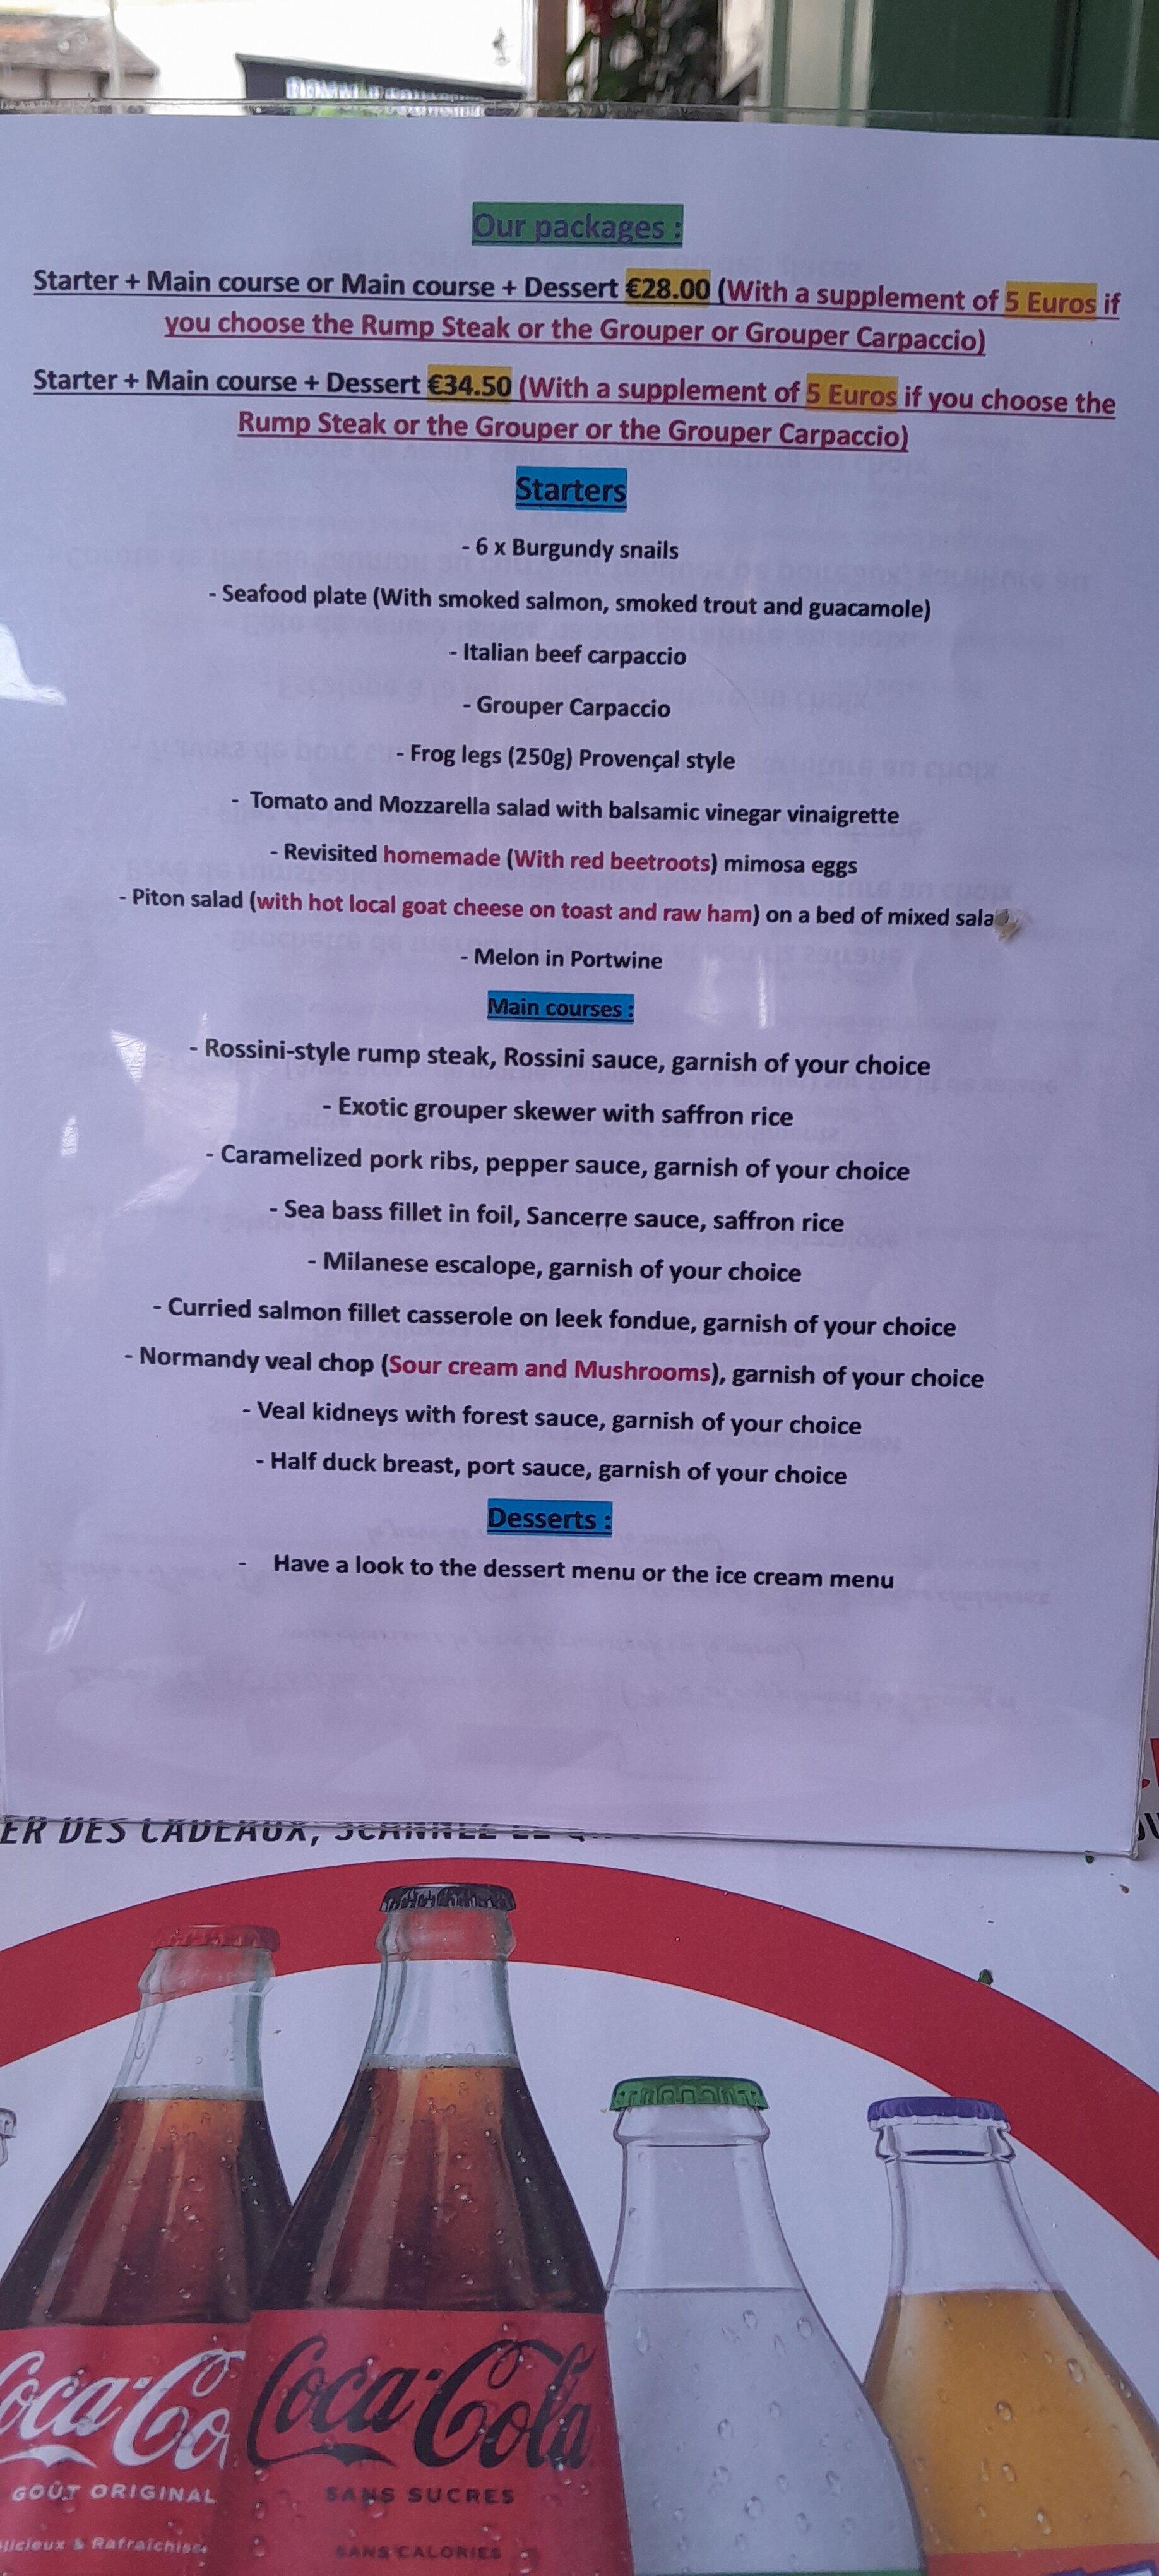 Our packages :
Starter + Main course or Main course + Dessert €28.00 (With a supplement of 5 Euros if
you choose the Rump Steak or the Grouper or Grouper Carpaccio)
Starter + Main course + Dessert €34.50 (With a supplement of 5 Euros if you choose the
Rump Steak or the Grouper or the Grouper Carpaccio)
Starters
- 6 x Burgundy snails
- Seafood plate (With smoked salmon, smoked trout and guacamole)
- Italian beef carpaccio
- Grouper Carpaccio
- Frog legs (250g) Provençal style
- Tomato and Mozzarella salad with balsamic vinegar vinaigrette
- Revisited homemade (With red beetroots) mimosa eggs
- Piton salad (with hot local goat cheese on toast and raw ham) on a bed of mixed sala
- Melon in Portwine
Main courses :
- Rossini-style rump steak, Rossini sauce, garnish of your choice
- Exotic grouper skewer with saffron rice
- Caramelized pork ribs, pepper sauce, garnish of your choice
- Sea bass fillet in foil, Sancerre sauce, saffron rice
- Milanese escalope, garnish of your choice
- Curried salmon fillet casserole on leek fondue, garnish of your choice
- Normandy veal chop (Sour cream and Mushrooms), garnish of your choice
- Veal kidneys with forest sauce, garnish of your choice
- Half duck breast, port sauce, garnish of your choice
Desserts :
- Have a look to the dessert menu or the ice cream menu
ER DES CADEAUX,
Coca-Co
GOÛT ORIGINAL
licieux & Rafraîchiss
Coca-Cola
SANS SUCRES
SANS CALORIES